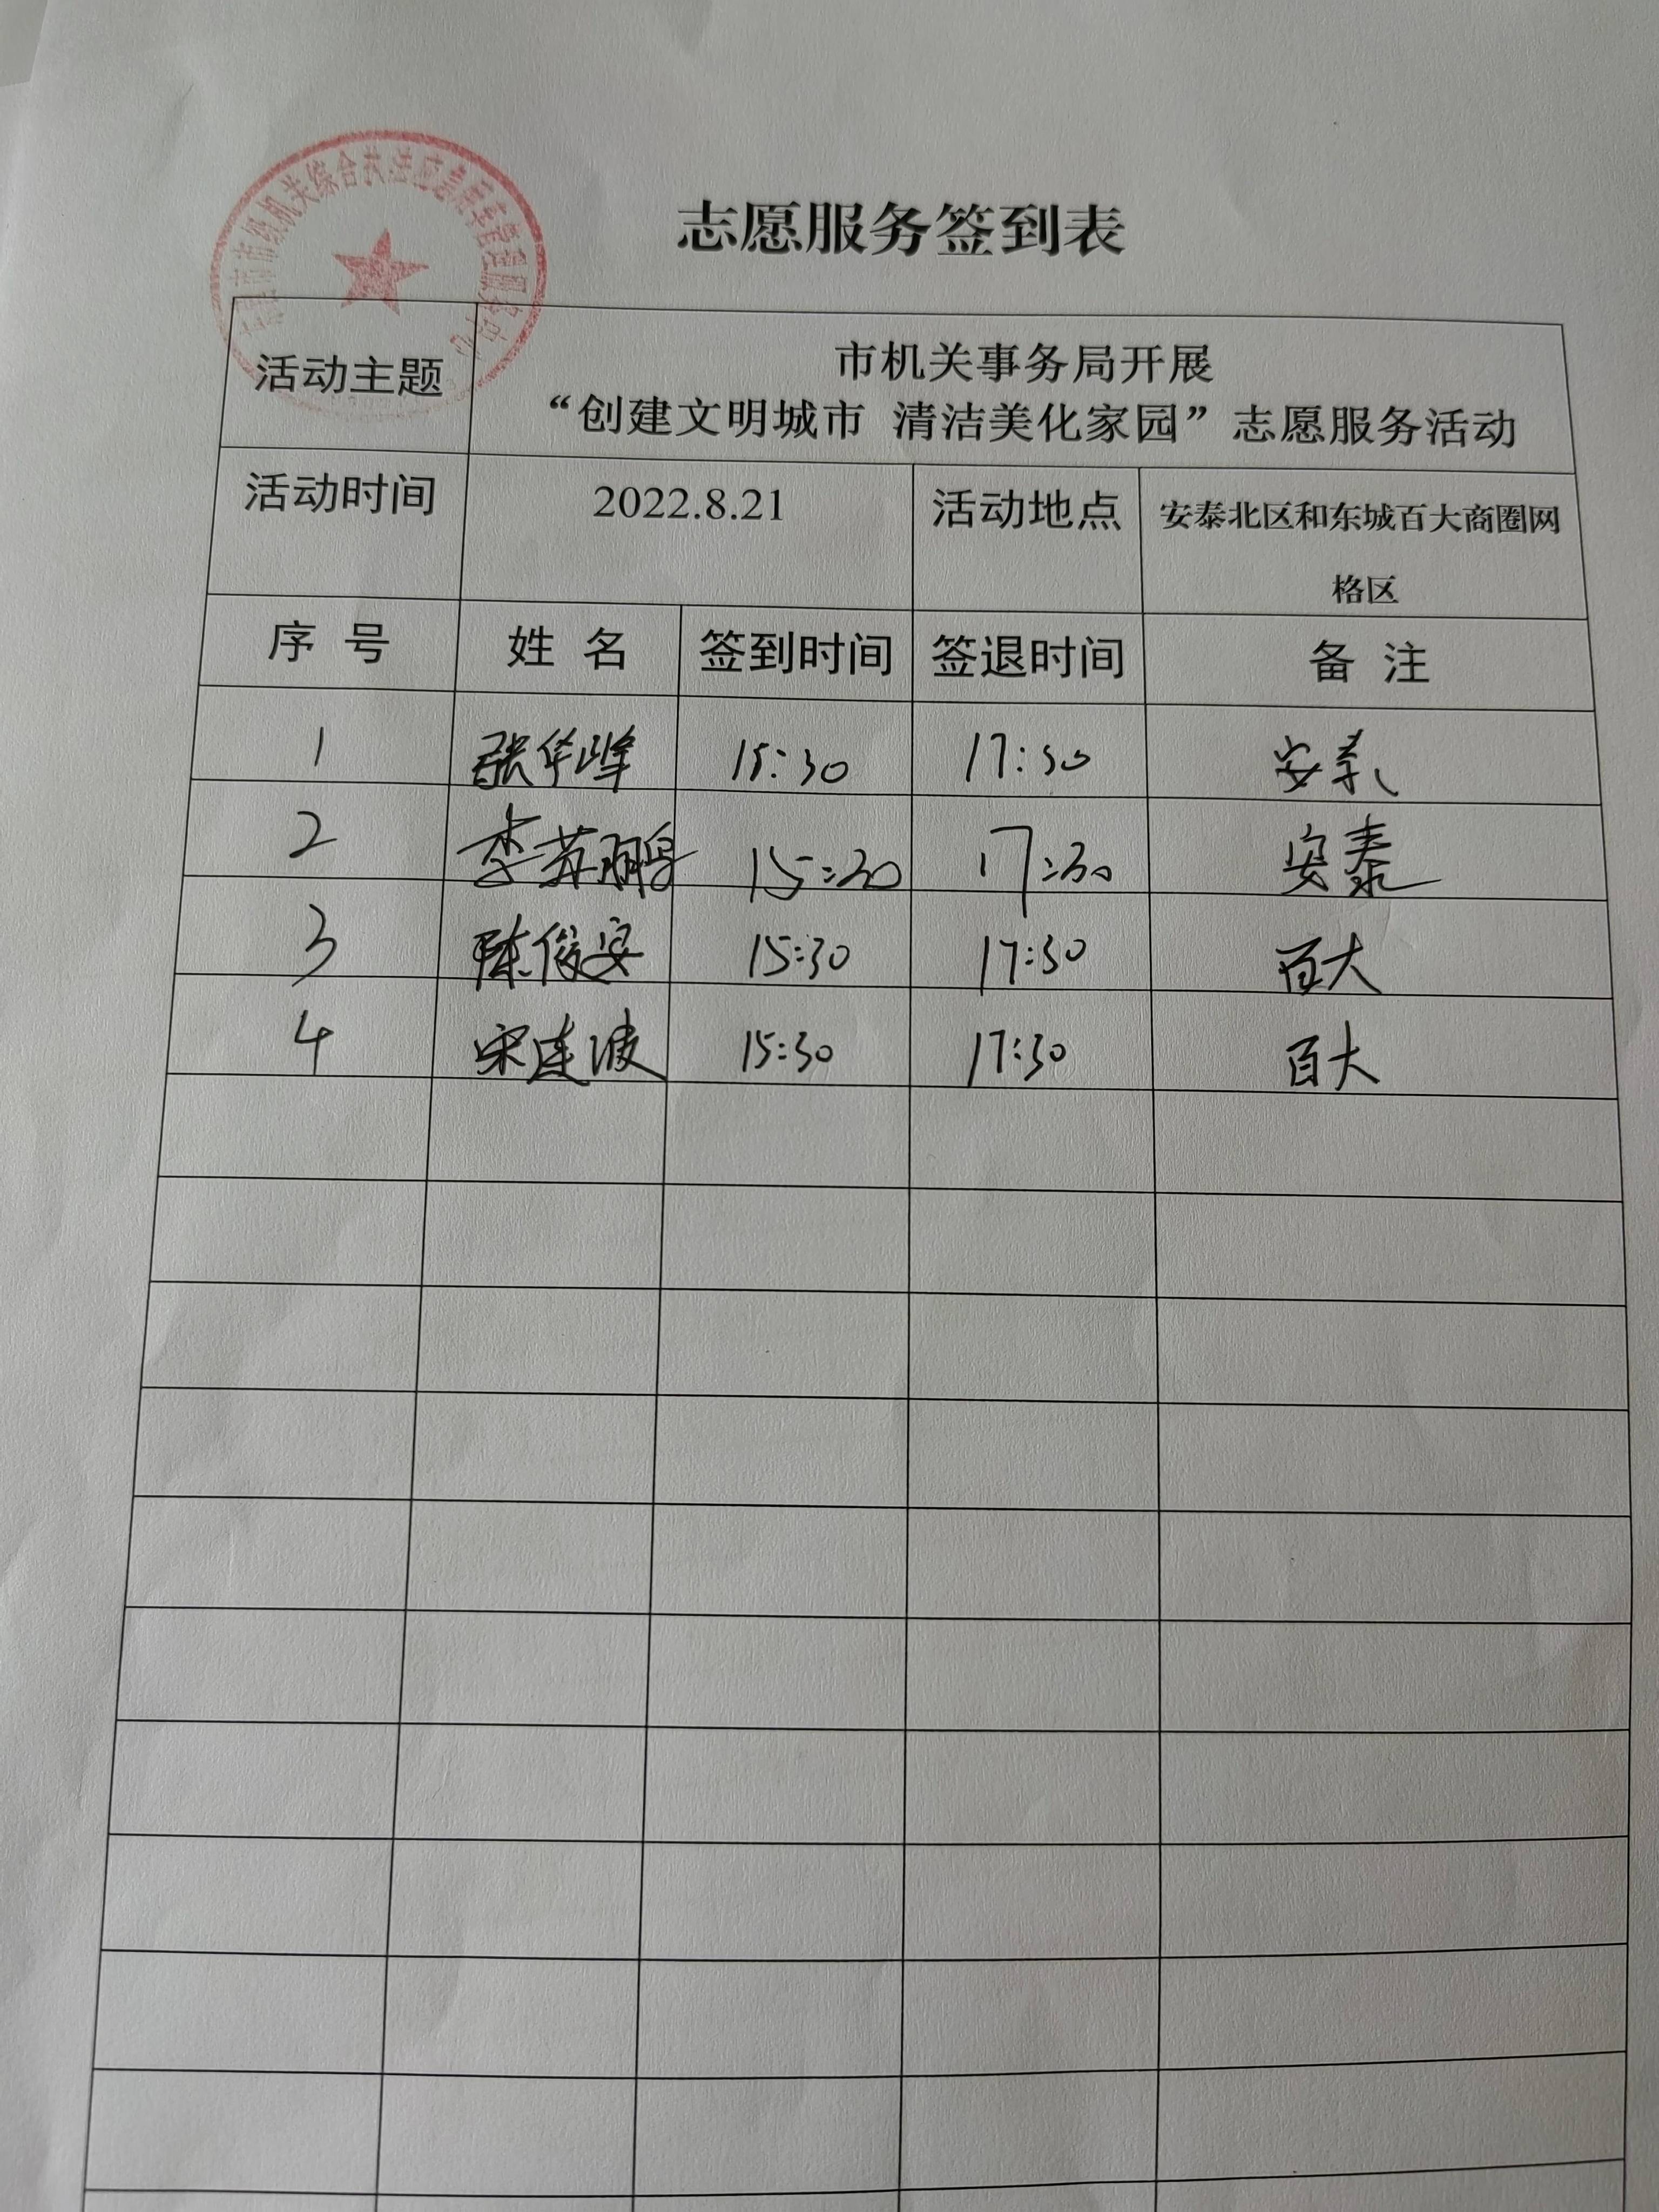 志愿服务签到表
活动主题
市机关事务局开展
“创建文明城市 清洁美化家园”志愿服务活动
活动时间 2022.8.21 活动地点 安泰北区和东城百大商圈网
格区
序 号 姓 名 签到时间 签退时间 备 注
1 张华峰 15:30 17:30 安泰
2 李苏鹏 15:30 17:30 安泰
3 陈俊安 15:30 17:30 百大
4 宋连波 15:30 17:30 百大